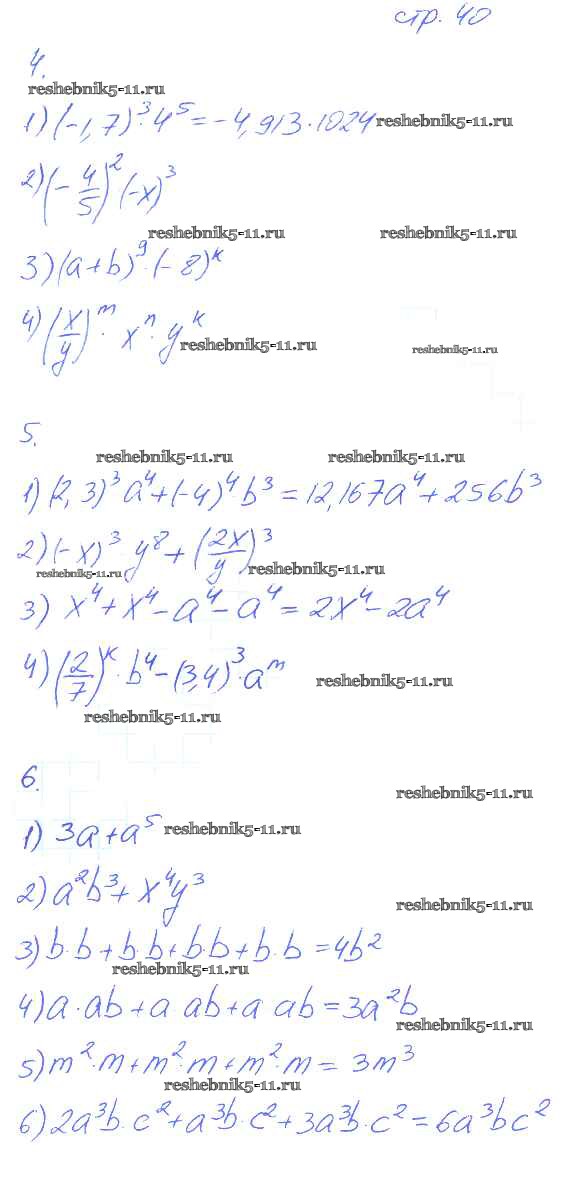 стр. 40
4.
reshebnik5-11.ru
1) (-1,7)³·4⁵=-4,913·1024 reshebnik5-11.ru
2) (-4/5)² (-x)³
reshebnik5-11.ru reshebnik5-11.ru
3) (a+b)⁹·(-8)ᵏ
4) (x/y)ᵐ·xⁿ·yᵏ
reshebnik5-11.ru reshebnik5-11.ru
5.
reshebnik5-11.ru reshebnik5-11.ru
1) (2,3)³a⁴+(-4)⁴b³=12,167a⁴+256b³
2) (-x)³ y⁸+(2x/y)³
reshebnik5-11.ru reshebnik5-11.ru
3) x⁴+x⁴-a⁴-a⁴=2x⁴-2a⁴
4) (2/7)ᵏ·b⁴-(3,4)³·aᵐ reshebnik5-11.ru
reshebnik5-11.ru
6.
reshebnik5-11.ru
1) 3a+a⁵ reshebnik5-11.ru
2) a²b³+x⁴y³
reshebnik5-11.ru
3) b·b+b·b+b·b+b·b=4b²
reshebnik5-11.ru
4) a·ab+a ab+a ab=3a²b
reshebnik5-11.ru
5) m²·m+m²·m+m²·m=3m³
reshebnik5-11.ru
6) 2a³b·c²+a³b·c²+3a³b·c²=6a³bc²